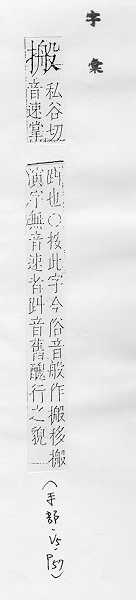 字彙
搬
私谷切
音速掌
也○按此字今俗音般作搬移搬
演字無音速者音舊醜行之貌
(手部·V5·P57)